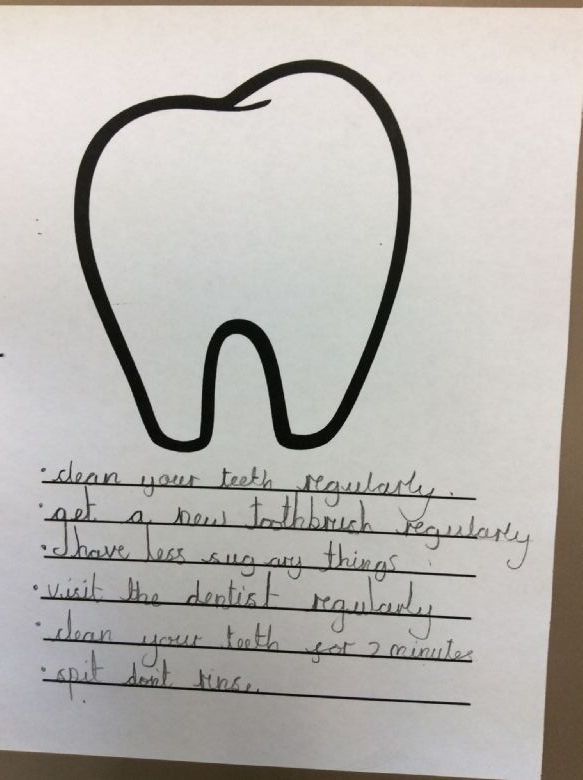 · clean your teeth regularly.
· get a new toothbrush regularly
· have less sugary things
· visit the dentist regularly
· clean your teeth for 2 minutes
· spit don't rinse.